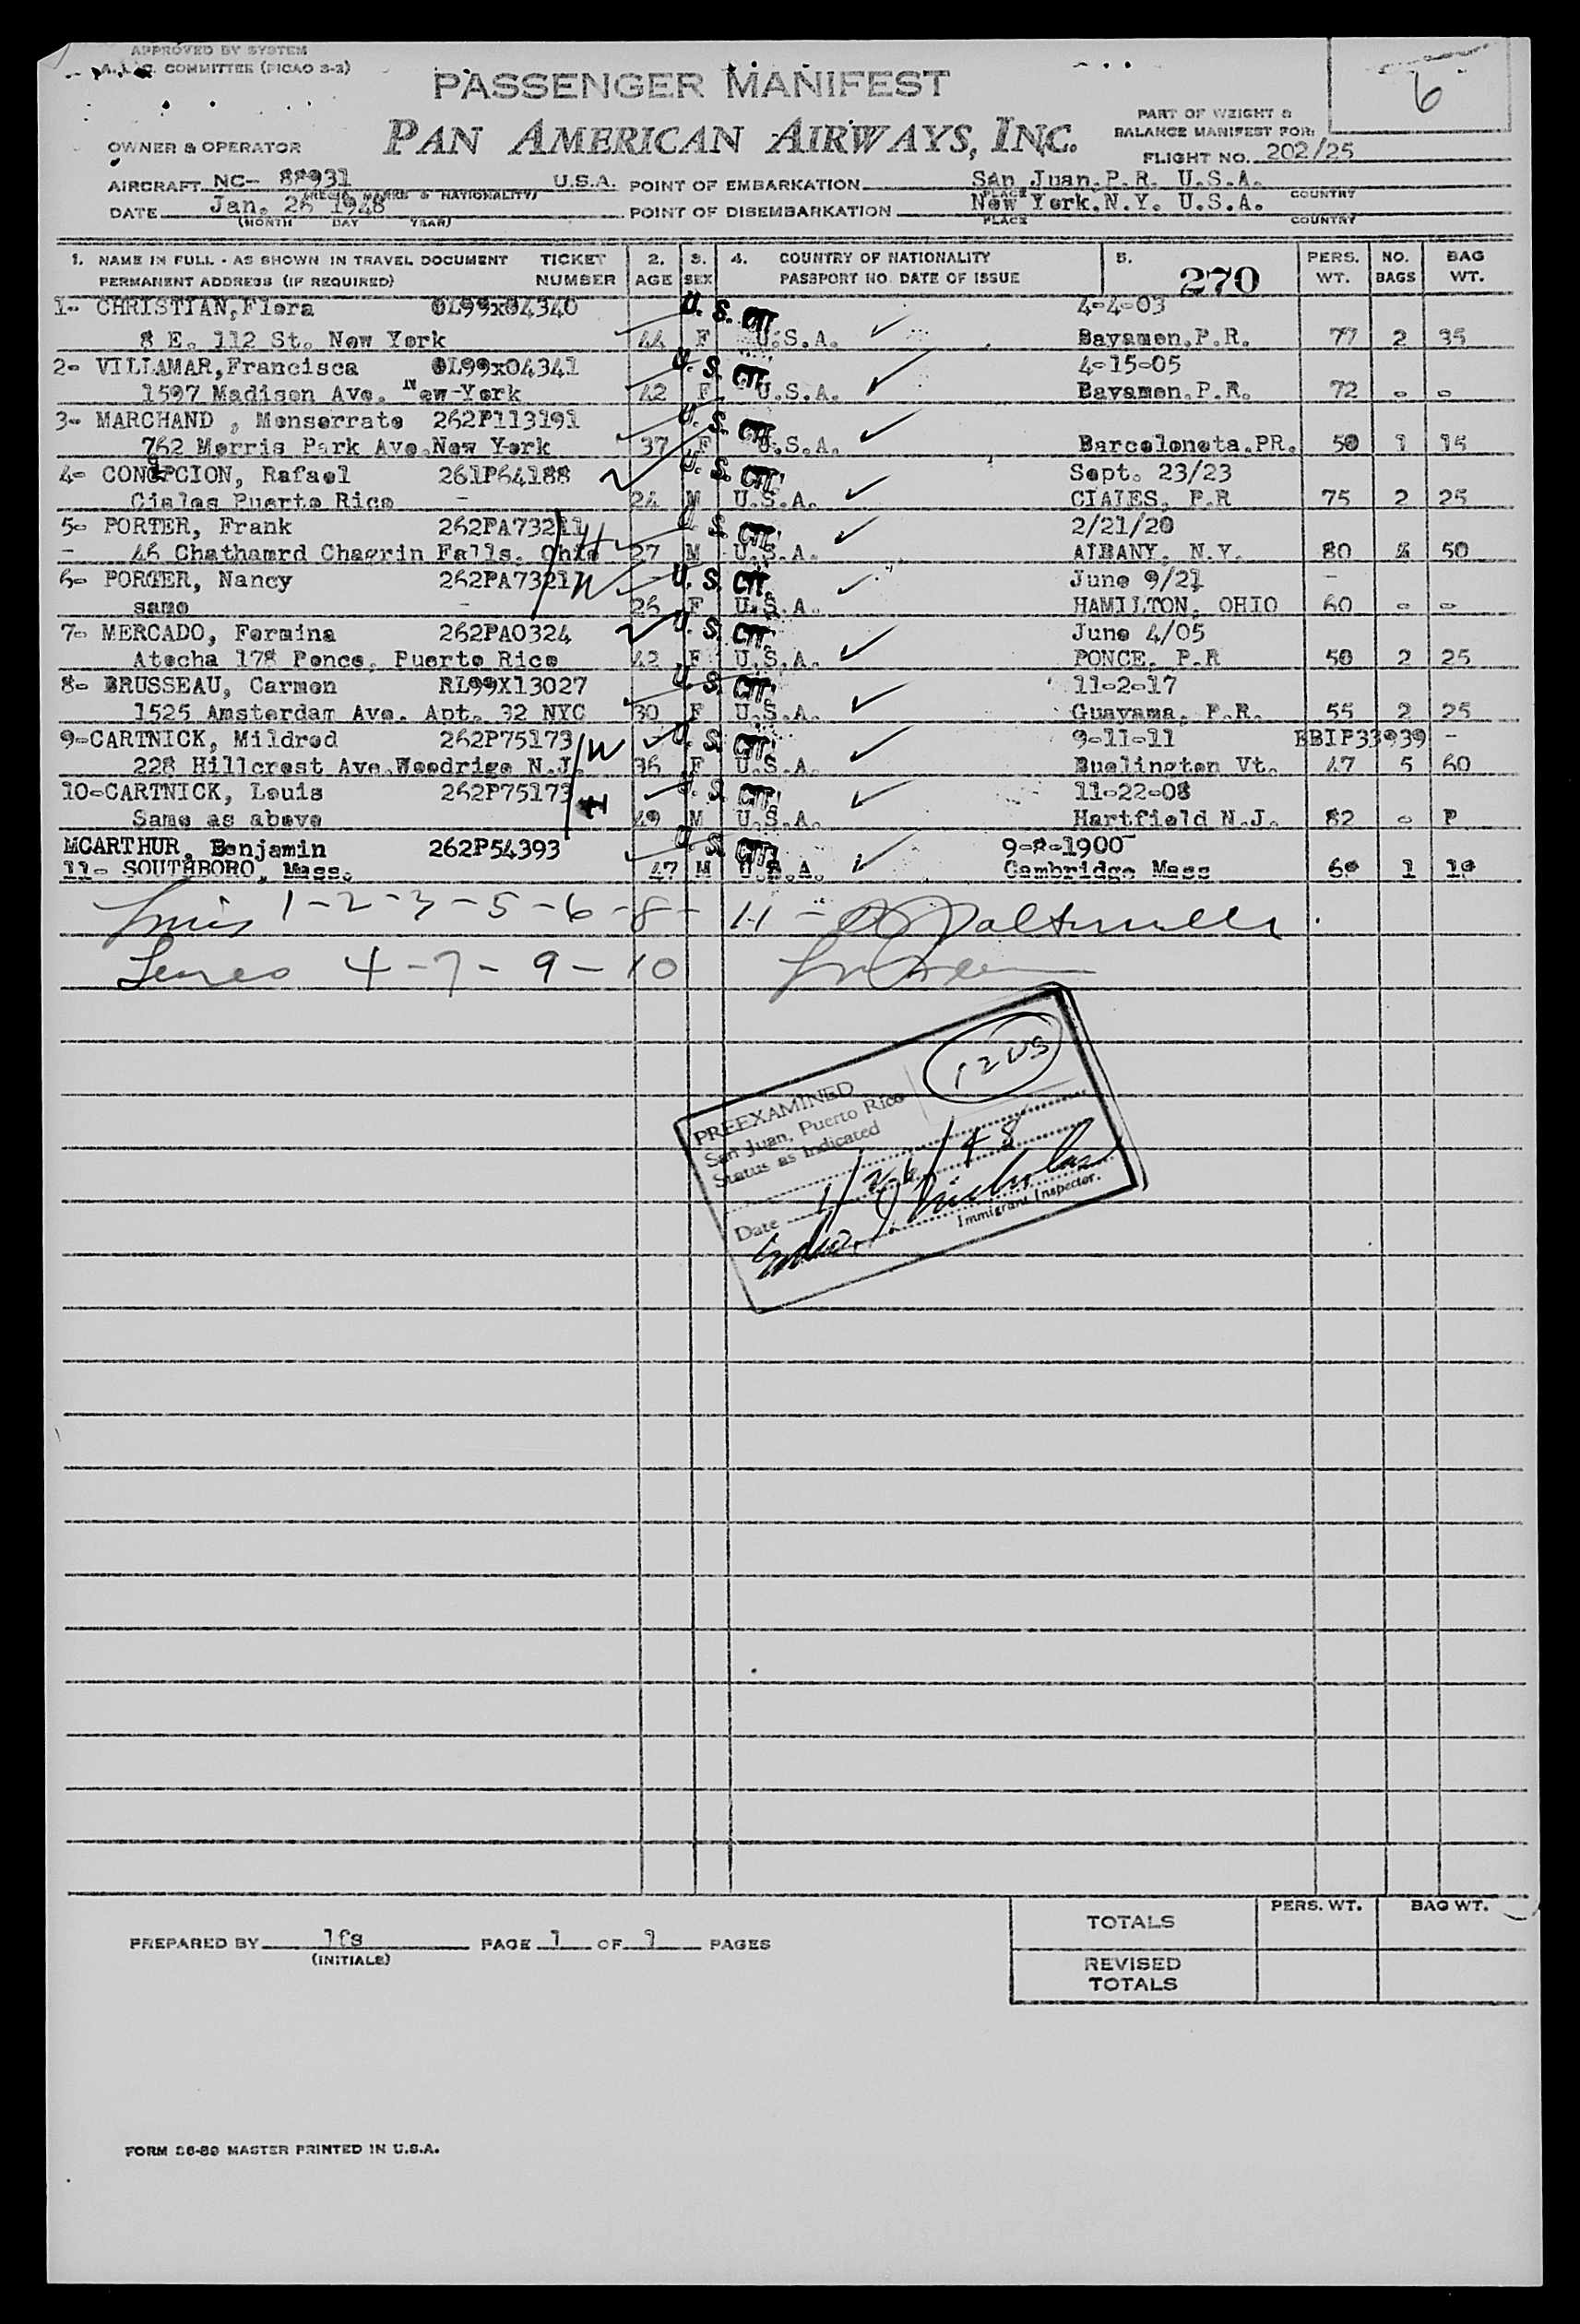 APPROVED BY SYSTEM
COMMITTEE (PICAO S-3)
6
PASSENGER MANIFEST
PART OF WEIGHT &
BALANCE MANIFEST FOR:
OWNER & OPERATOR PAN AMERICAN AIRWAYS, INC.
FLIGHT NO. 202/25
AIRCRAFT NC- 88931 U.S.A. POINT OF EMBARKATION San Juan,P.R. U.S.A.
PLACE COUNTRY
DATE Jan. 26 1948 POINT OF DISEMBARKATION New York,N.Y. U.S.A.
(MONTH DAY YEAR) PLACE COUNTRY
1. NAME IN FULL - AS SHOWN IN TRAVEL DOCUMENT TICKET 2. 3. 4. COUNTRY OF NATIONALITY 5. PERS. NO. BAG
PERMANENT ADDRESS (IF REQUIRED) NUMBER AGE SEX PASSPORT NO. DATE OF ISSUE 270 WT. BAGS WT.
1- CHRISTIAN,Flora OL99x04340 U. S. CIT. 4-4-03
8 E. 112 St. New York 44 F U.S.A. Bayamon,P.R. 77 2 35
2- VILLAMAR,Francisca OL99x04341 U. S. CIT. 4-15-05
1597 Madison Ave. New-York 42 F U.S.A. Bayamon,P.R. 72 - -
3- MARCHAND , Monserrate 262P113191 U. S. CIT.
762 Morris Park Ave.New York 37 F U.S.A. Barceloneta.PR. 50 1 15
4- CONCPCION, Rafael 261P64188 U. S. CIT. Sept. 23/23
Ciales Puerto Rico - 24 M U.S.A. CIALES, P.R 75 2 25
5- PORTER, Frank 262PA73211 H U. S. CIT. 2/21/20
- 46 Chathamrd Chagrin Falls, Ohio 27 M U.S.A. ALBANY, N.Y. 80 50
6- PORTER, Nancy 262PA73211 W U. S. CIT. June 9/21 -
same - 26 F U.S.A. HAMILTON, OHIO 60 - -
7- MERCADO, Fermina 262PA0324 U. S. CIT. June 4/05
Atocha 178 Ponce, Puerto Rico 42 F U.S.A. PONCE, P.R 50 2 25
8- BRUSSEAU, Carmen RL99X13027 U. S. CIT. 11-2-17
1525 Amsterdam Ave. Apt. 32 NYC 30 F U.S.A. Guayama, P.R. 55 2 25
9-CARTNICK, Mildred 262P75173 W U. S. CIT. 9-11-11 EBIP33939 -
228 Hillcrest Ave.Woodrige N.J. 36 F U.S.A. Buelington Vt. 47 5 60
10-CARTNICK, Louis 262P75173 H U. S. CIT. 11-22-08
Same as above 49 M U.S.A. Hartfield N.J. 82 - P
MCARTHUR, Benjamin 262P54393 U. S. CIT. 9-8-1900
11- SOUTHBORO, Mass. 47 M U.S.A. Cambridge Mass 60 1 10
1-2-3-5-6-8-11-
4-7-9-10
12 US
PREEXAMINED
San Juan, Puerto Rico
Status as Indicated
Date 1/26/48
Immigrant Inspector.
TOTALS PERS. WT. BAG WT.
PREPARED BY lfs PAGE 1 OF 1 PAGES
(INITIALS)
REVISED
TOTALS
FORM 86-89 MASTER PRINTED IN U.S.A.